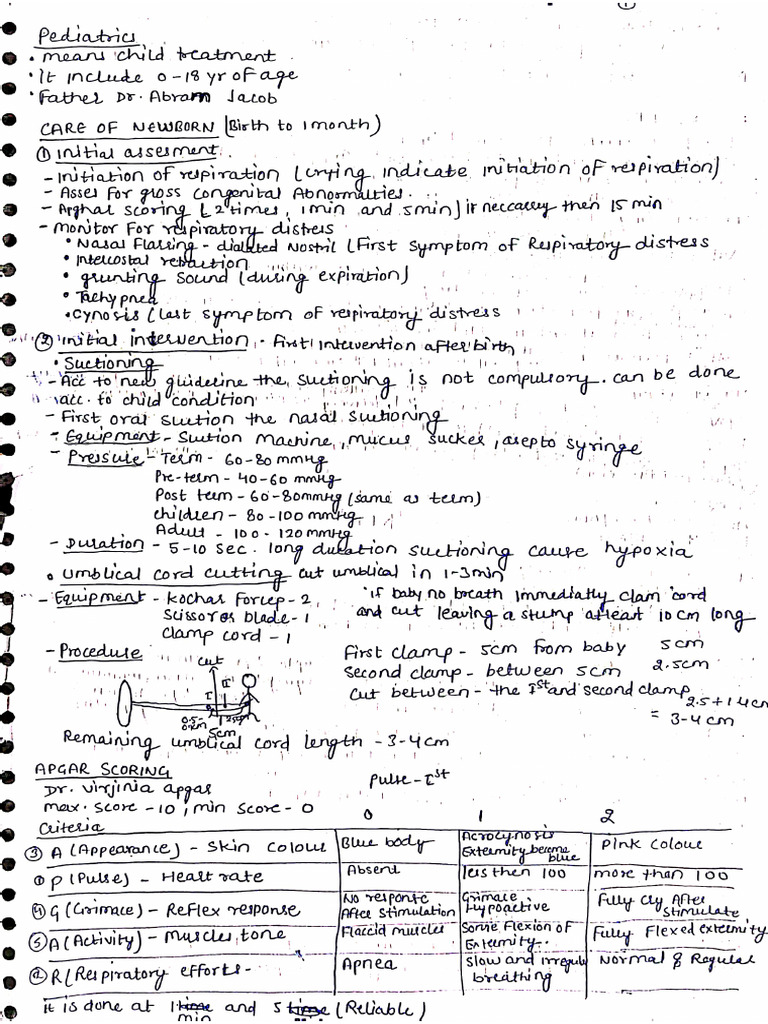 1
Pediatrics
• means child treatment.
• It include 0-18 yr of age
• Father Dr. Abram Jacob
CARE OF NEWBORN (Birth to 1 month)
① Initial assesment.
- Initiation of respiration (crying indicate initiation of respiration)
- Asses for gross congenital Abnormalties.
- Apghar scoring [2 times, 1 min and 5 min] if neccarry then 15 min
- monitor for respiratory distres
• Nasal flassing - dialated Nostril (First symptom of Respiratory distress
• Intercostal retraction
• grunting sound (during expiration)
• Tachypnea
• Cynosis (last symptom of respiratory distress
② Initial intervention - First intervention after birth
• Suctioning
- Acc to new guideline the suctioning is not compulsory. can be done
acc. to child condition
- First oral suction the nasal suctioning
- Equipment - Suction machine, mucus sucker, asepto syringe
- Pressure - Term - 60-80 mmHg
Pre-term - 40-60 mmHg
Post term - 60-80mmHg (same as term)
children - 80-100 mmHg
Adult - 100-120 mmHg
- Duration - 5-10 sec. long duration suctioning cause hypoxia
• umblical cord cutting cut umblical in 1-3min
- Equipment - kochar forcep - 2
Scissores blade - 1
Clamp cord - 1
* if baby no breath immediatly clam cord
and cut leaving a stump atleast 10 cm long
- Procedure
First clamp - 5cm from baby 5cm
Second clamp - between 5cm 2.5cm
Cut between - the Ist and second clamp
2.5+1.4cm
= 3-4cm
Cut
I II
5cm
Remaining umblical cord length - 3-4 cm
APGAR SCORING
Pulse - Ist
Dr. virjinia apgar
max. score - 10, min score - 0
Criteria 0 1 2
③ A (Appearance) - Skin colour Blue body Acrocynosis Extermity become blue Pink colour
① P (Pulse) - Heart rate Absent less then 100 more than 100
④ G (Grimace) - Reflex response No response After stimulation Grimace Hypoactive Fully cry After stimulate
⑤ A (Activity) - Muscles tone Flaccid muscles Some flexion of Extermity.. Fully Flexed extermity
② R (Respiratory efforts - Apnea Slow and irregular breathing Normal & Regular
it is done at 1 time min and 5 time (Reliable)